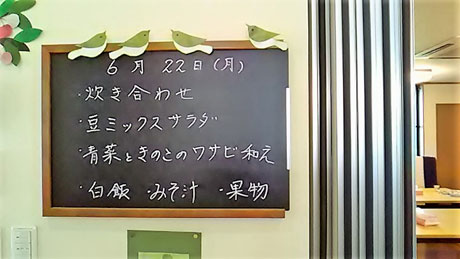 6月22日(月)
・炊き合わせ
・豆ミックスサラダ
・青菜ときのこのワサビ和え
・白飯 ・みそ汁 ・果物